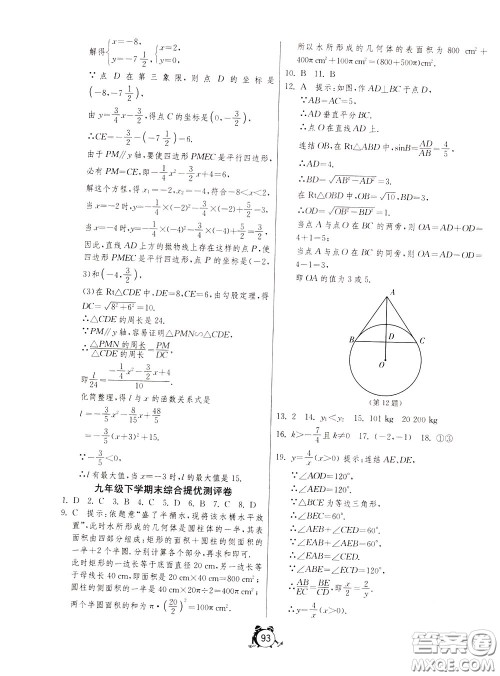 解得{x=-8, y=-7 1/2, {x=2, y=0.
∵点 D 在第三象限,则点 D 的坐标是
(-8,-7 1/2).
由 y=3/4x-3/2,得点 C 的坐标是(0,-3/2),
∴CE=-3/2-(-7 1/2)=6.
由于 PM∥y 轴,要使四边形 PMEC 是平行四边形,
必有 PM=CE,即-1/4x²-3/2x+4=6.
解这个方程,得 x₁=-2,x₂=-4,符合-8<x<2,
当 x=-2 时,y=-1/4×(-2)²-3/4×(-2)+5/2=3,
当 x=-4 时,y=-1/4×(-4)²-3/4×(-4)+5/2=3/2.
因此,直线 AD 上方的抛物线上存在这样的点 P,使
四边形 PMEC 是平行四边形,点 P 的坐标是(-2,
3)和(-4,3/2).
(3)在 Rt△CDE 中,DE=8,CE=6,由勾股定理,得
DC=√(8²+6²)=10.
∴△CDE 的周长是 24.
∵PM∥y 轴,容易证明△PMN∽△CDE,
∴△PMN的周长/△CDE的周长=PM/DC,
即 l/24=(-1/4x²-3/2x+4)/10.
化简整理,得 l 与 x 的函数关系式是
l=-3/5x²-18/5x+48/5
=-3/5(x+3)²+15.
∵-3/5<0,
∴l 有最大值,当 x=-3 时,l 的最大值是 15.
九年级下学期末综合提优测评卷
1. D 2. C 3. B 4. C 5. D 6. C 7. B 8. D
9. C 提示:依题意“盛了半桶水,现将该水桶水平放
置”,此时水所形成的几何体是圆柱体的一半,其表
面积由四部分组成:矩形的面积+圆柱的侧面积的
一半+2个半圆.分别计算各个部分,再求和即可.
此时矩形的一边长等于底面直径 20 cm,另一边长等
于母线长 40 cm,即面积是 20 cm×40 cm=800 cm²;
圆柱的侧面积的一半是 40 cm×20π÷2=400π cm²;
两个半圆面积的和为 π·(20/2)²=100π cm².
所以水所形成的几何体的表面积为 800 cm²+
400π cm²+100π cm²=(800+500π)cm².
10. B 11. B
12. A 提示:如图,作 AD⊥BC 于点 D,
∵AB=AC=5,
∴AD 垂直平分 BC.
∴点 O 在直线 AD 上.
连结 OB,在 Rt△ABD 中,sinB=AD/AB=4/5,
∴AD=4.
∴BD=√(AB²-AD²)=3.
在 Rt△OBD 中,OB=√10,BD=3,
∴OD=√(OB²-BD²)=1.
当点 A 与点 O 在 BC 的两旁,则 OA=AD+OD=
4+1=5;
当点 A 与点 O 在 BC 的同旁,则 OA=AD-OD=
4-1=3;
即 OA 的值为 3 或 5.
A
B D C
O
(第12题)
13. 2 14. y₁<y₂ 15. 101 kg 20 200 kg
16. k>-7/4且 k≠0 17. (-2,-1) 18. ①③
19. y=4/x(x>0) 提示:连结 AE,DE,
∵∠AOD=120°,
∴∠AED=120°.
∵△BCE 为等边三角形,
∴∠BEC=60°.
∴∠AEB+∠CED=60°.
∵∠EAB+∠AEB=60°,
∴∠EAB=∠CED.
∵∠ABE=∠ECD=120°,
∴AB/EC=BE/CD,即 x/2=2/y.
∴y=4/x(x>0).
93
答案圈
MXQE.COM